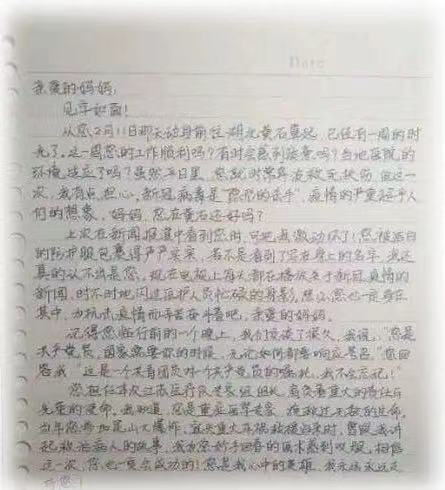 Date
亲爱的妈妈:
见字如面!
从您2月11日那天动身前往湖北黄石算起,已经有一周的时
光了。这一周您的工作顺利吗?有时会感到疲惫吗?当地医院的
环境适应了吗?虽然平日里,您就时常奔波救死扶伤,但这一
次,我有点担心,新冠病毒是“隐形的杀手”,疫情的严重超乎人
们的想象,妈妈,您在黄石还好吗?
上次在新闻报道中看到您时,可把我激动坏了!您被洁白
的防护服包裹得严严实实,若不是看到了您身上的名字,我还
真的认不出是您。现在电视上每天都在播放关于新冠疫情的
新闻,时不时地闪过医护人员忙碌的身影,想必您也一定身在
其中,为抗击疫情而辛苦奋斗着吧,亲爱的妈妈。
记得您临行前的一个晚上,我们交谈了很久,我说:“您是
共产党员,国家需要你的时候,无论如何都要响应号召。”您回
答我:“这是一个共青团员对一个共产党员的嘱托,我不会忘记!”
您担任本次江苏医疗队专家组组长,肩负着重大的责任与
光荣的使命。我知道,您是重症医学专家,挽救过无数的生命。
当年您参加昆山大爆炸、重大抢救归来时,曾跟我讲
起救治病人的故事,我为您妙手回春的医术感到叹服,相信
这一次,您也一定会成功的!您是我心中的英雄,我永远永远支
持您!